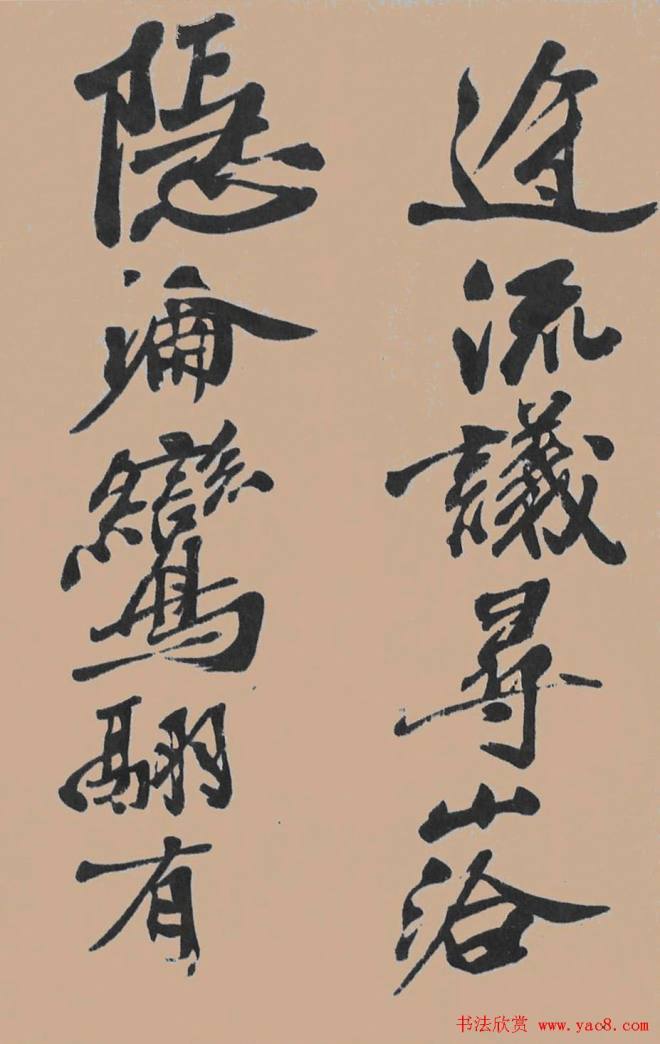 迕流議尋山洽
隱淪鸞翮有
书法欣赏 www.yac8.com